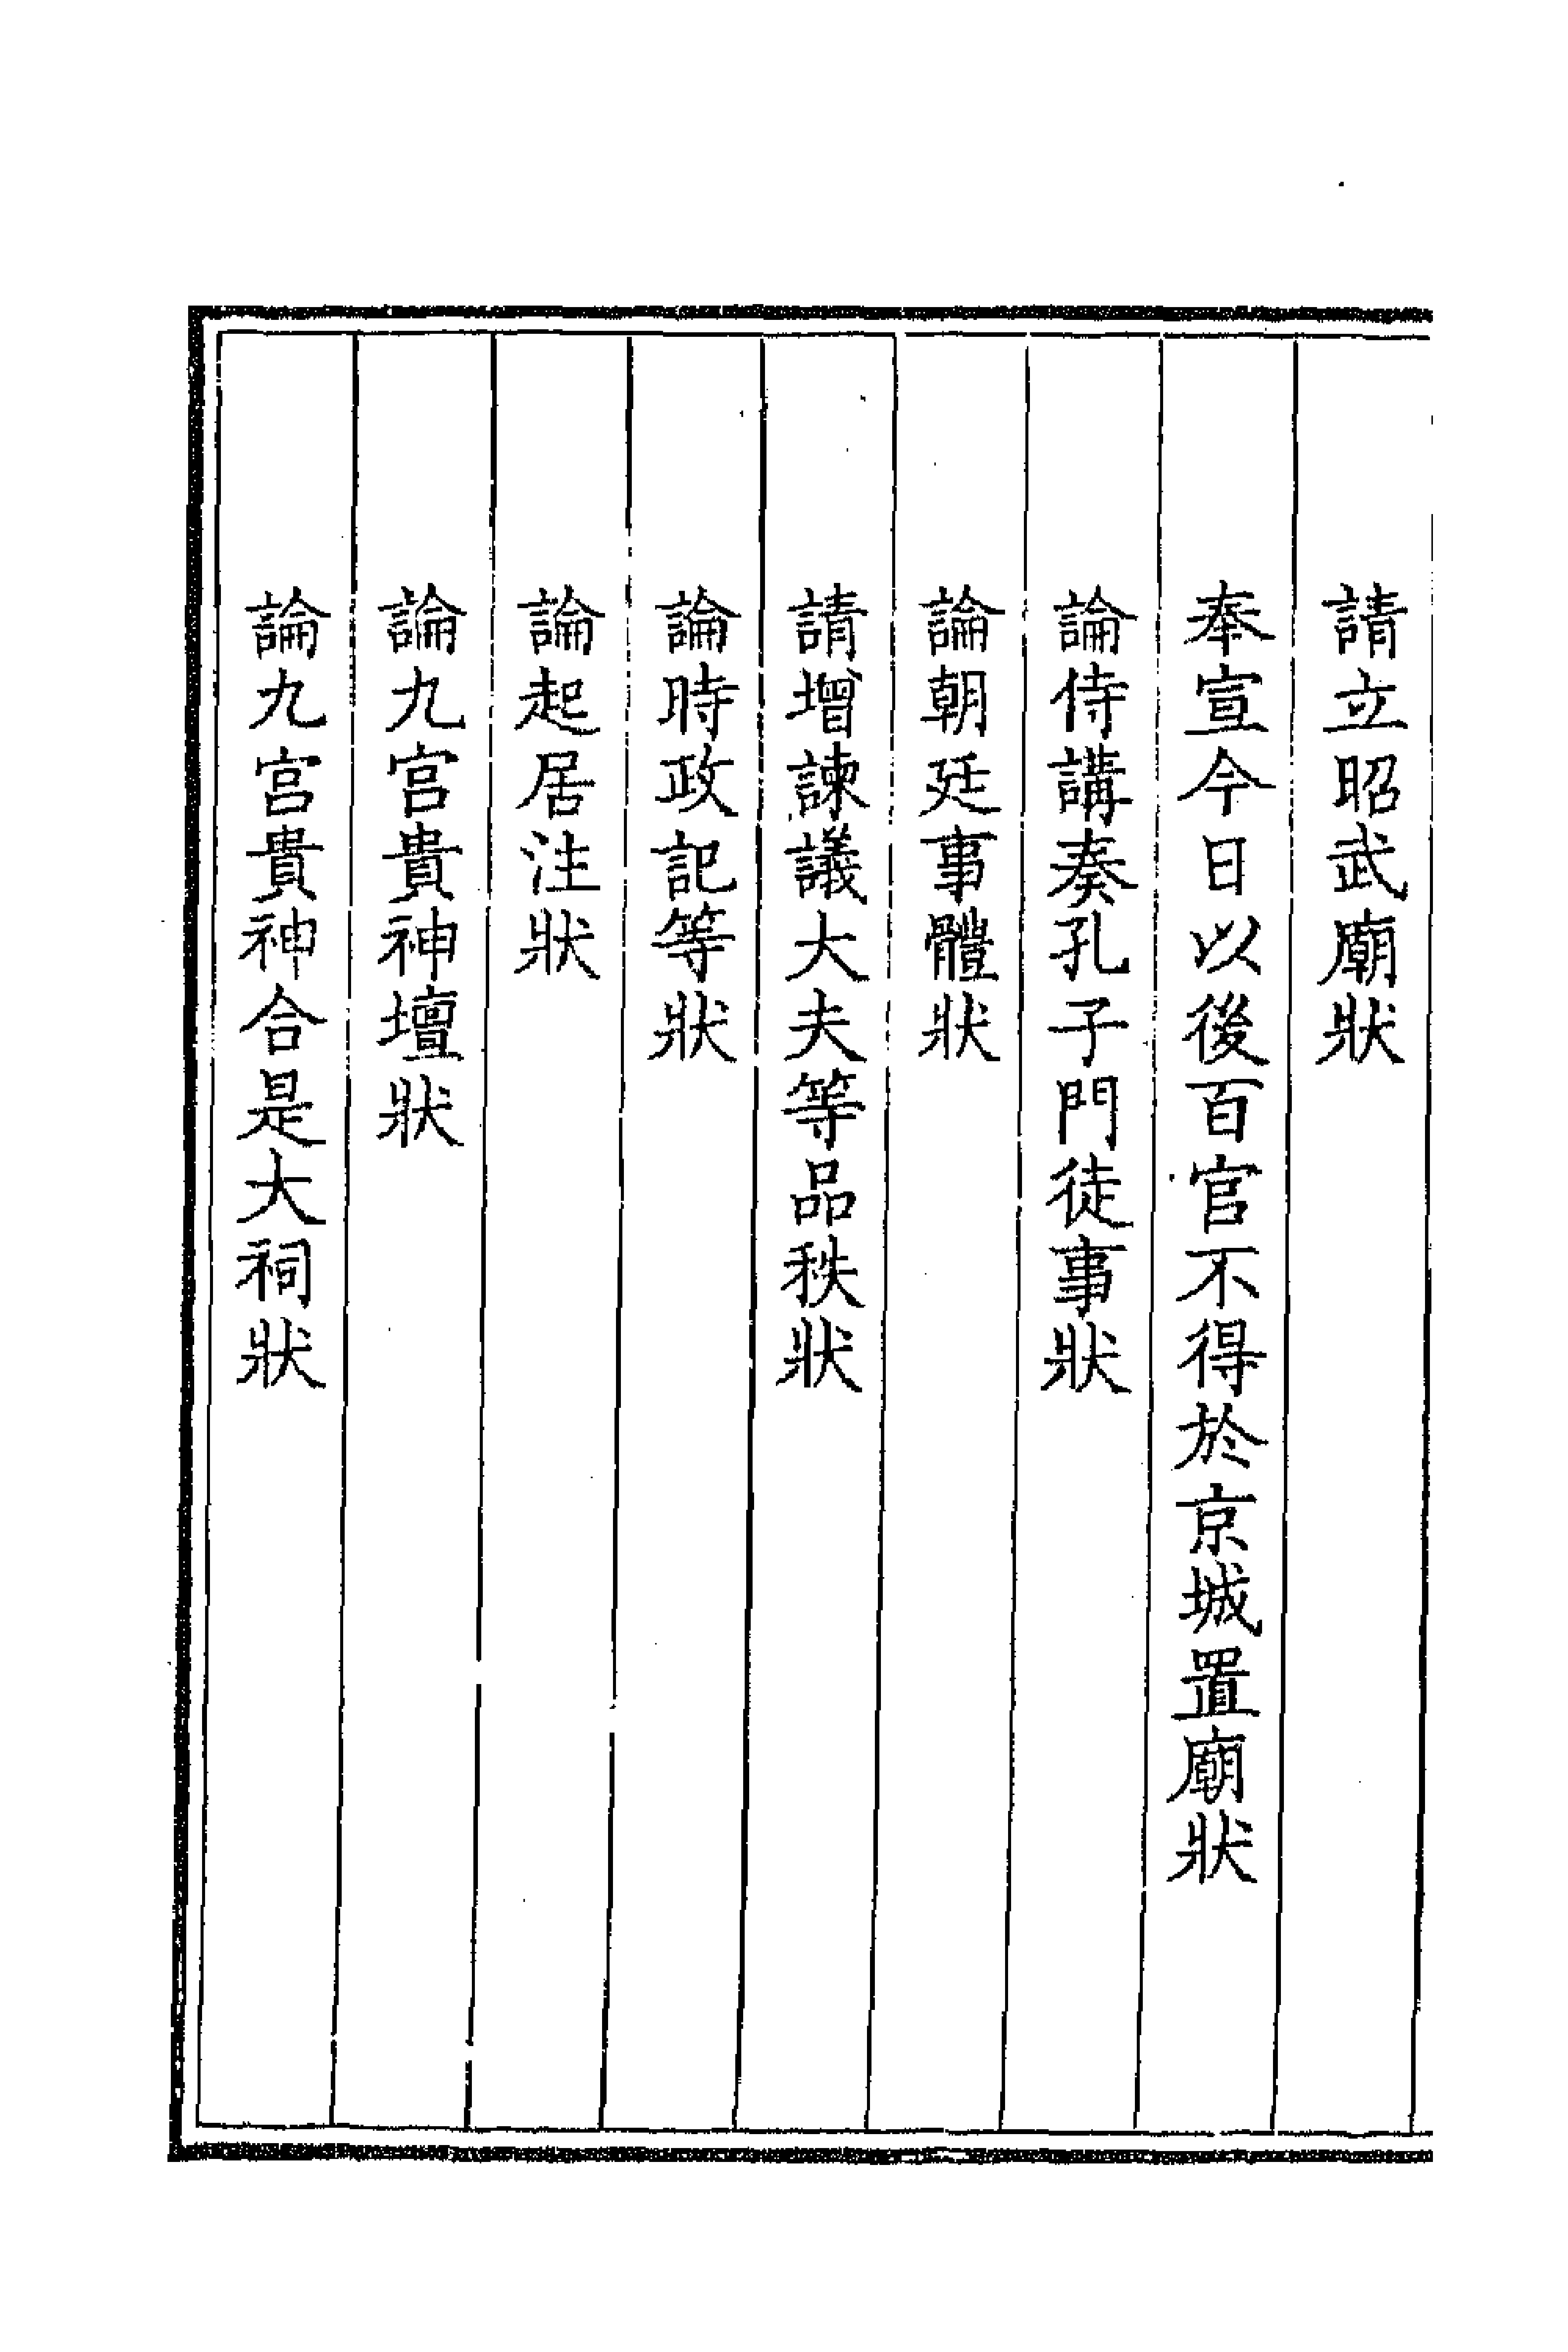 請立昭武廟狀
奉宣今日以後百官不得於京城置廟狀
論侍講奏孔子門徒事狀
論朝廷事體狀
請增諫議大夫等品秩狀
論時政記等狀
論起居注狀
論九宫貴神壇狀
論九宫貴神合是大祠狀